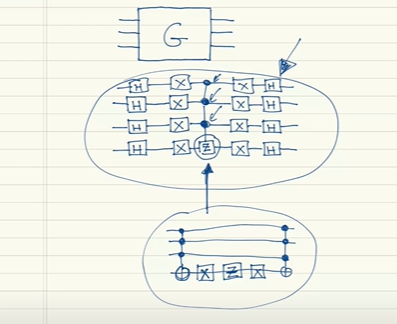 G
H X X H
H X X H
H X X H
H X Z X H
X Z X